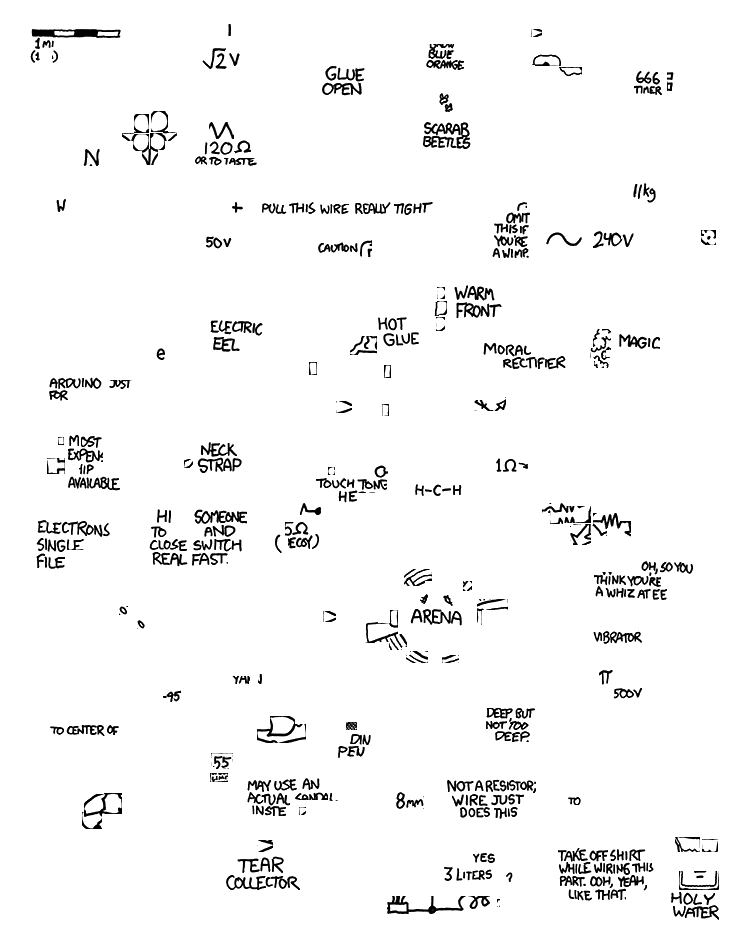 1 MI
√2 V
BLUE
ORANGE
GLUE
OPEN
666
TIMER
SCARAB
BEETLES
N
120Ω
OR TO TASTE
11/kg
W
+
PULL THIS WIRE REALLY TIGHT
OMIT
THIS IF
YOU'RE
A WIMP.
50V
CAUTION
240V
WARM
FRONT
ELECTRIC
EEL
HOT
GLUE
MORAL
RECTIFIER
MAGIC
e
ARDUINO JUST
FOR
MOST
AVAILABLE
NECK
STRAP
TOUCH TONE
1Ω
H-C-H
ELECTRONS
SINGLE
FILE
HI SOMEONE
TO AND
CLOSE SWITCH
REAL FAST.
5Ω
OH, SO YOU
THINK YOU'RE
A WHIZ AT EE
ARENA
VIBRATOR
π
500V
-95
TO CENTER OF
DEEP, BUT
NOT TOO
DEEP.
DIN
PEN
55
MAY USE AN
ACTUAL
8mm
NOT A RESISTOR;
WIRE JUST
DOES THIS
TO
TEAR
COLLECTOR
YES
3 LITERS
?
TAKE OFF SHIRT
WHILE WIRING THIS
PART. OOH, YEAH,
LIKE THAT.
HOLY
WATER